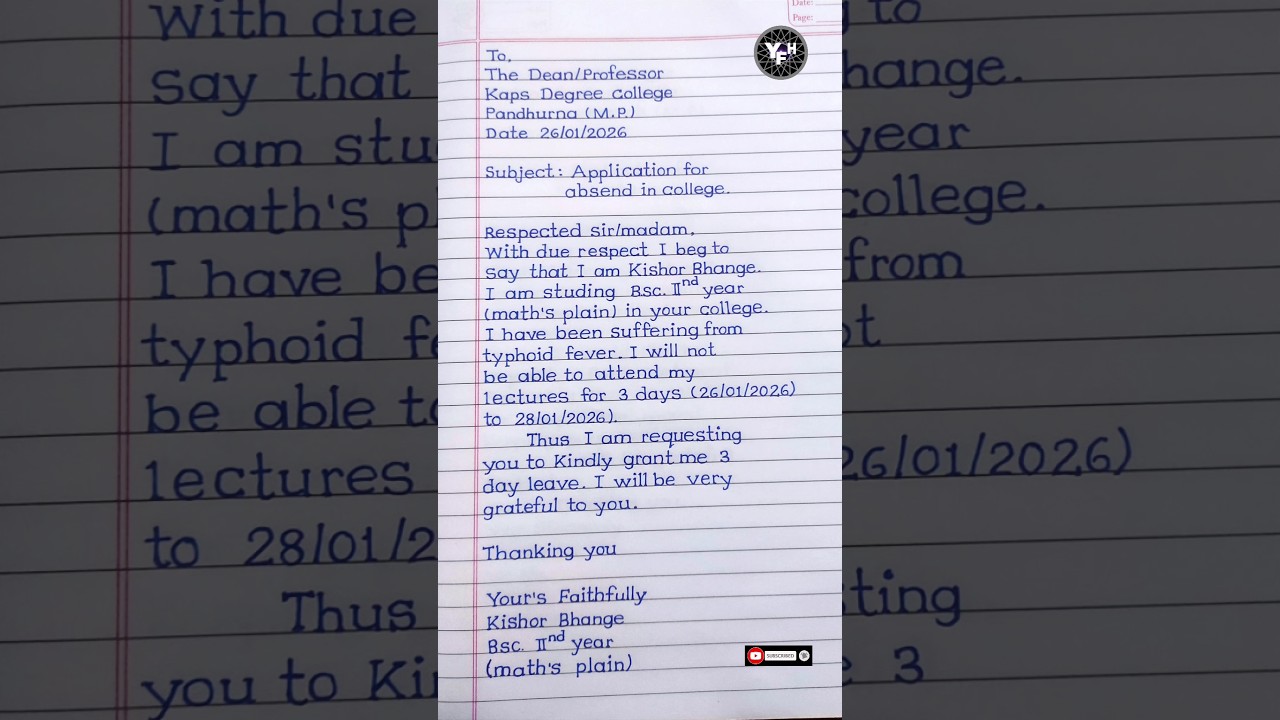 Date:
Page:
YFH
To,
The Dean/Professor
Kaps Degree college
Pandhurna (M.P.)
Date 26/01/2026
Subject: Application for
absend in college.
Respected sir/madam,
With due respect I beg to
say that I am Kishor Bhange.
I am studing Bsc. IInd year
(math's plain) in your college.
I have been suffering from
typhoid fever. I will not
be able to attend my
lectures for 3 days (26/01/2026)
to 28/01/2026).
Thus I am requesting
you to Kindly grant me 3
day leave. I will be very
grateful to you.
Thanking you
Your's Faithfully
Kishor Bhange
Bsc. IInd year
(math's plain)
SUBSCRIBED